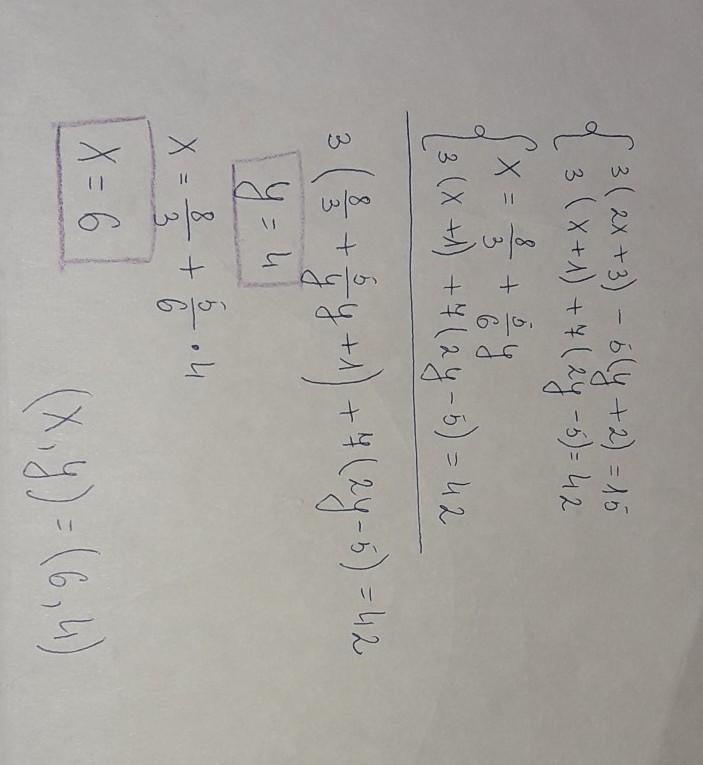 3(2x+3) - 5(y+2) = 15
3(x+1) + 7(2y-5) = 42
x = 8/3 + 5/6 y
3(x+1) + 7(2y-5) = 42
3(8/3 + 5/y y + 1) + 7(2y-5) = 42
y = 4
x = 8/3 + 5/6 · 4
x = 6
(x,y) = (6,4)